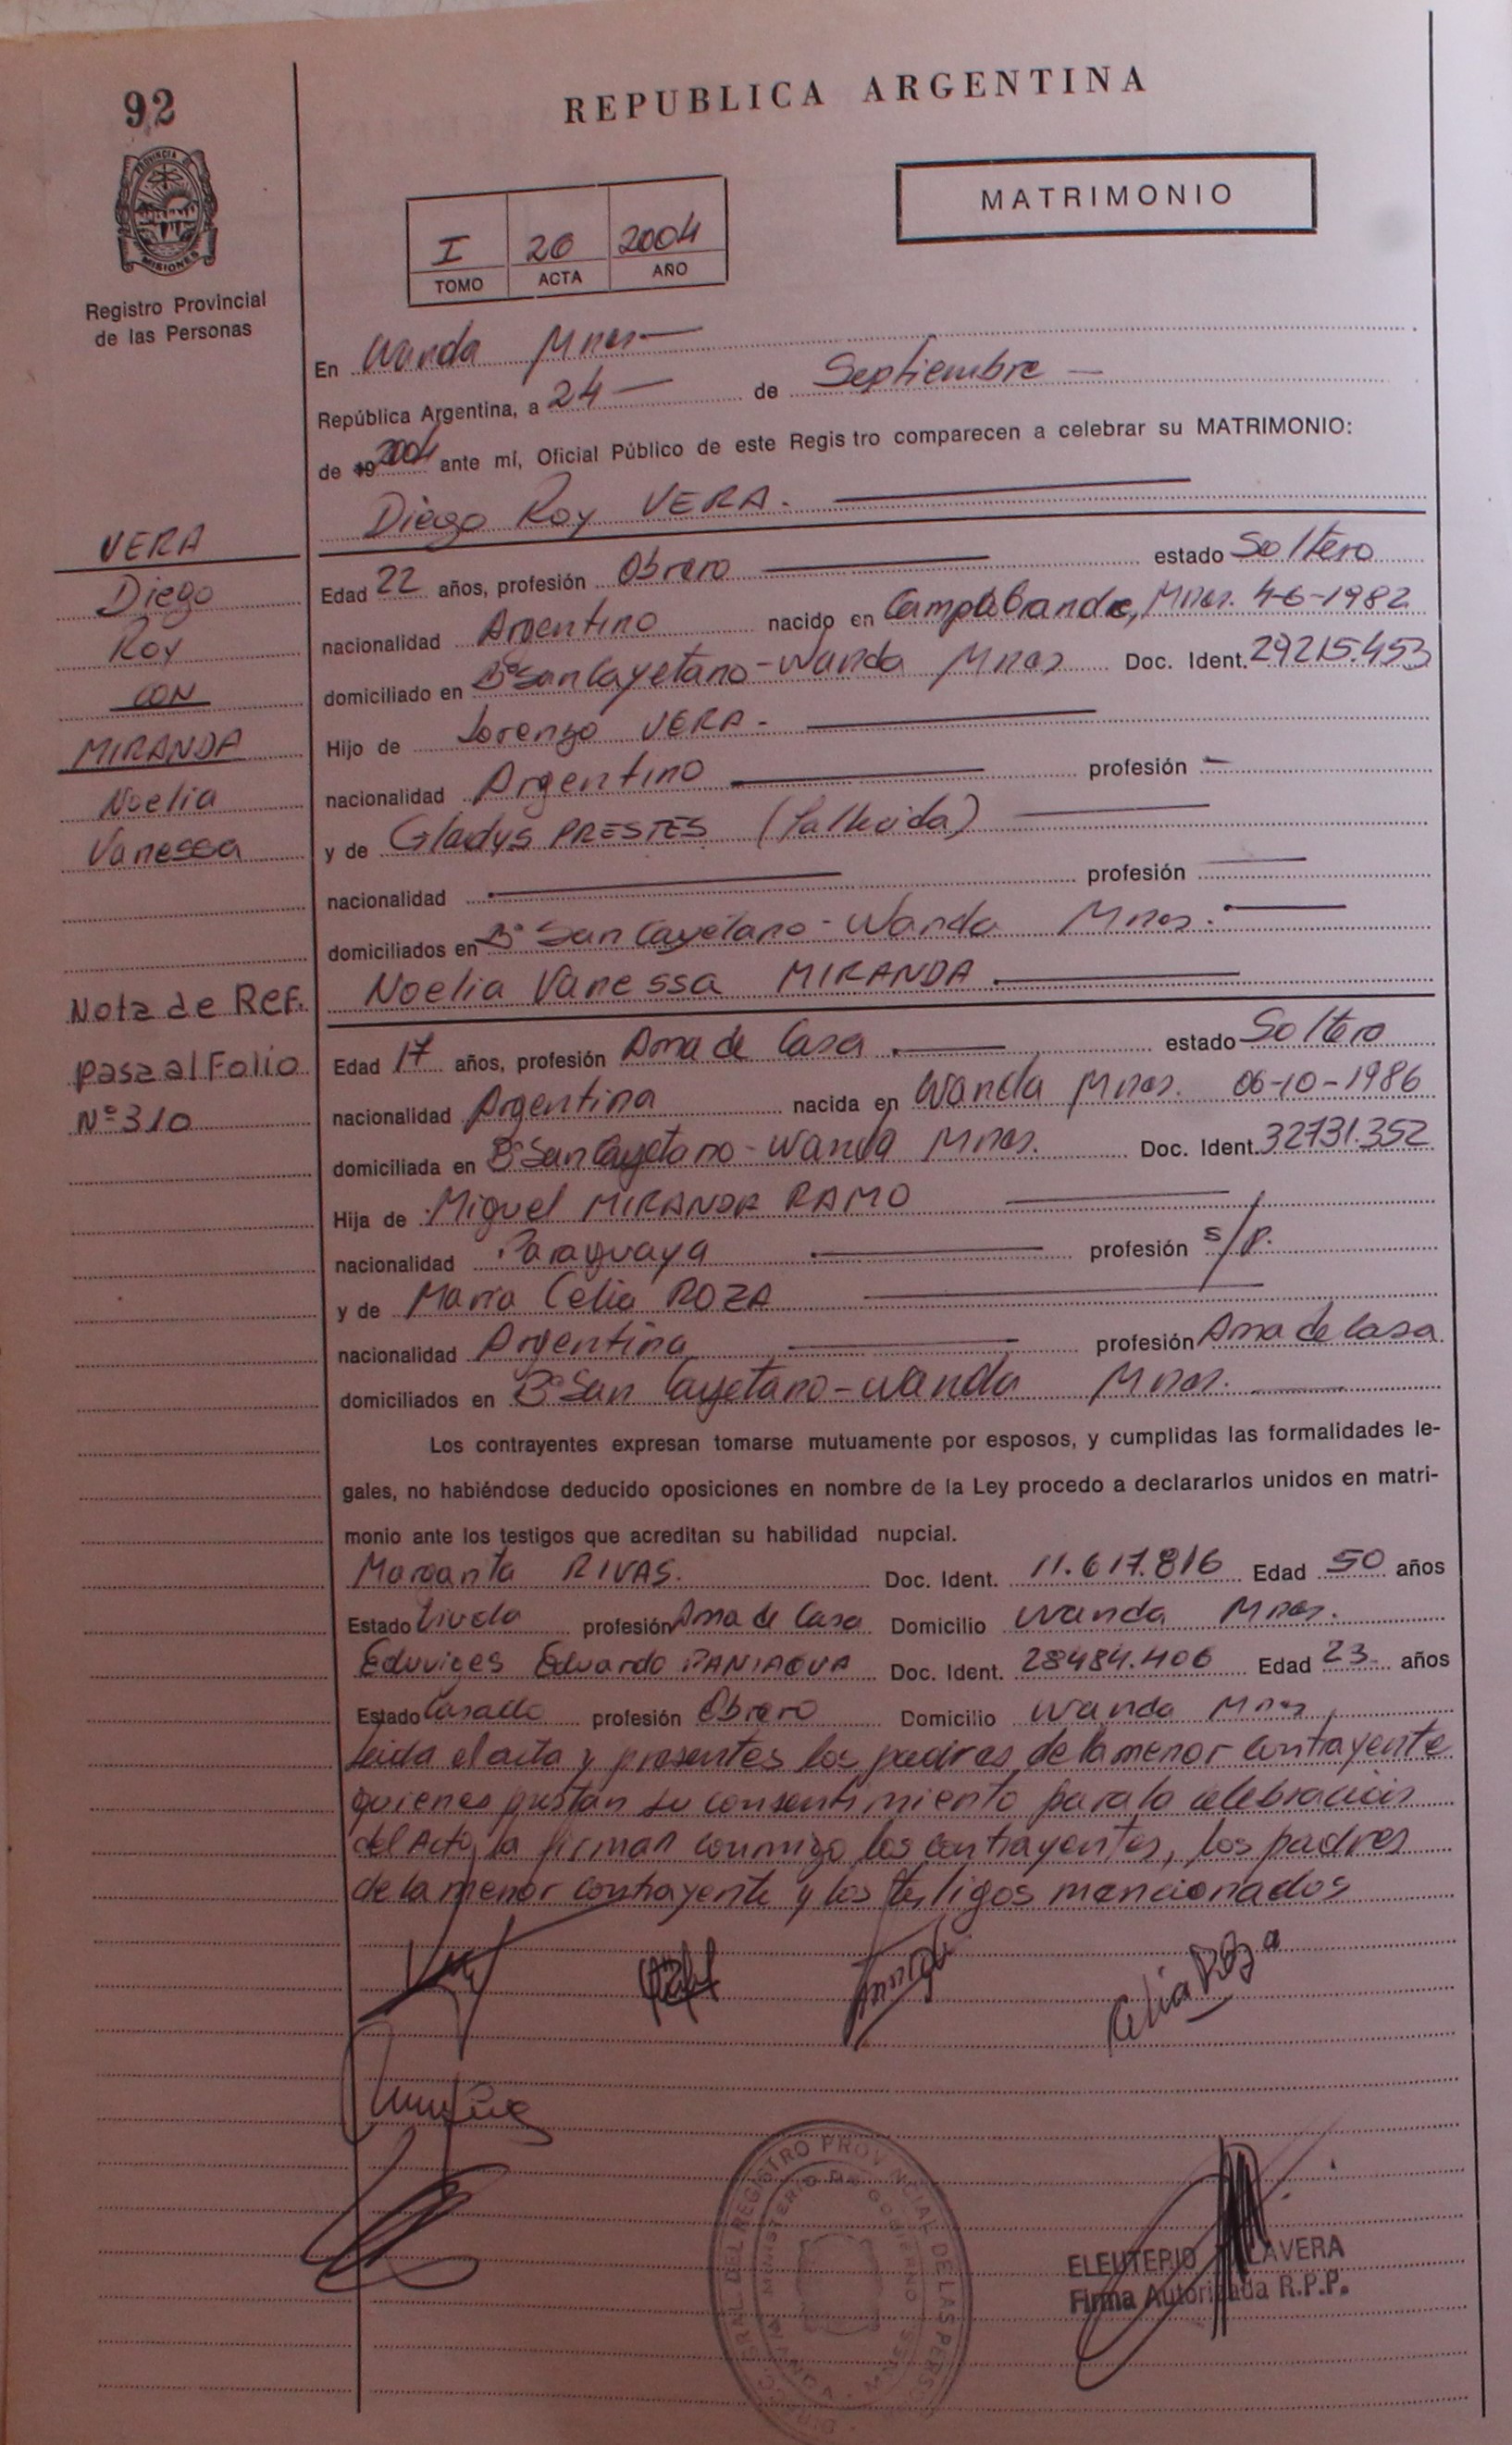 92
PROVINCIA DE
MISIONES
Registro Provincial
de las Personas
REPUBLICA ARGENTINA
MATRIMONIO
I 20 2004
TOMO ACTA AÑO
En Wanda Mnes
República Argentina, a 24 de Septiembre
de 19 2004 ante mí, Oficial Público de este Registro comparecen a celebrar su MATRIMONIO:
Diego Roy VERA.
VERA
Diego
Roy
CON
MIRANDA
Noelia
Vanessa
Nota de Ref.
pasa al Folio
Nº 310
Edad 22 años, profesión Obrero estado Soltero
nacionalidad Argentino nacido en Campo Grande, Mnes. 4-6-1982
domiciliado en Bº San Cayetano - Wanda Mnes Doc. Ident. 29215.453
Hijo de Lorenzo VERA.
nacionalidad Argentino profesión
y de Gladys PRESTES (fallecida)
nacionalidad profesión
domiciliados en Bº San Cayetano - Wanda Mnes.
Noelia Vanessa MIRANDA
Edad 17 años, profesión Ama de Casa estado Soltero
nacionalidad Argentina nacida en Wanda Mnes. 06-10-1986
domiciliada en Bº San Cayetano - Wanda Mnes. Doc. Ident. 32731.352
Hija de Miguel MIRANDA RAMO
nacionalidad Paraguaya profesión s/p.
y de Maria Celia ROZA
nacionalidad Argentina profesión Ama de Casa
domiciliados en Bº San Cayetano - Wanda Mnes.
Los contrayentes expresan tomarse mutuamente por esposos, y cumplidas las formalidades le-
gales, no habiéndose deducido oposiciones en nombre de la Ley procedo a declararlos unidos en matri-
monio ante los testigos que acreditan su habilidad nupcial.
Margarita RIVAS. Doc. Ident. 11.617.816 Edad 50 años
Estado Viuda profesión Ama de Casa Domicilio Wanda Mnes.
Eduviges Eduardo PANIAGUA Doc. Ident. 28484.406 Edad 23 años
Estado Casado profesión Obrero Domicilio Wanda Mnes
Leida el acta y presentes los padres de la menor contrayente
quienes prestan su consentimiento para la celebración
del Acto, la firman conmigo los contrayentes, los padres
de la menor contrayente y los testigos mencionados
Celia Roza
REGISTRO PROVINCIAL DE LAS PERSO
MINISTERIO DE GOBIERNO
WANDA
ELEUTERIO LAVERA
Firma Autorizada R.P.P.